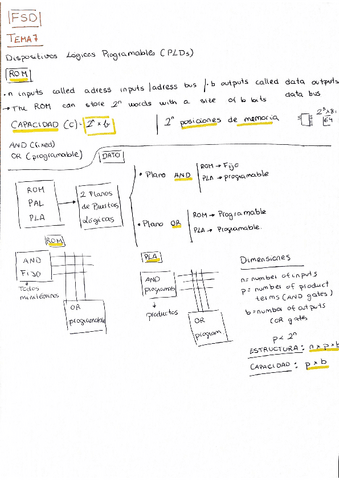 FSD
TEMA 7
Dispositivos Lógicos Programables (PLDs)
ROM
· n inputs called adress inputs / adress bus / · b outputs called data outputs
data bus
→ The ROM can store 2ⁿ words with a size of b bits
CAPACIDAD (C) = 2ⁿ × b
2ⁿ posiciones de memoria
AND (fixed)
OR (programable)
DATO
ROM
PAL
PLA
2 Planos
de Puertas
Lógicas
· Plano AND
ROM → Fijo
PLA → programable
· Plano OR
ROM → Programable
PLA → Programable
ROM
AND
FIJO
Todos
OR
programable
PLA
AND
programable
productos
OR
program
Dimensiones
n = number of inputs
p = number of product
terms (AND gates)
b = number of outputs
(OR gates)
p < 2ⁿ
ESTRUCTURA: n × p × b
CAPACIDAD: p × b